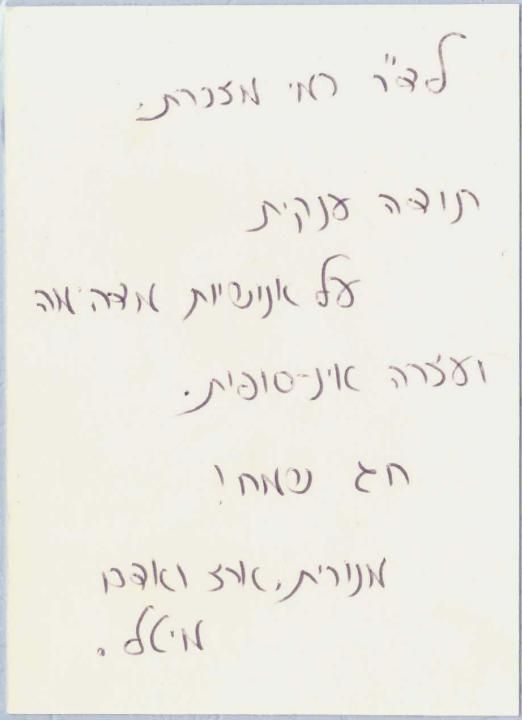 לד"ר רמי מזכרת.
תודה ענקית
על אנושיות מדהימה
ועזרה אין-סופית.
חג שמח!
מנורית, ארז ואדם
מיטל.